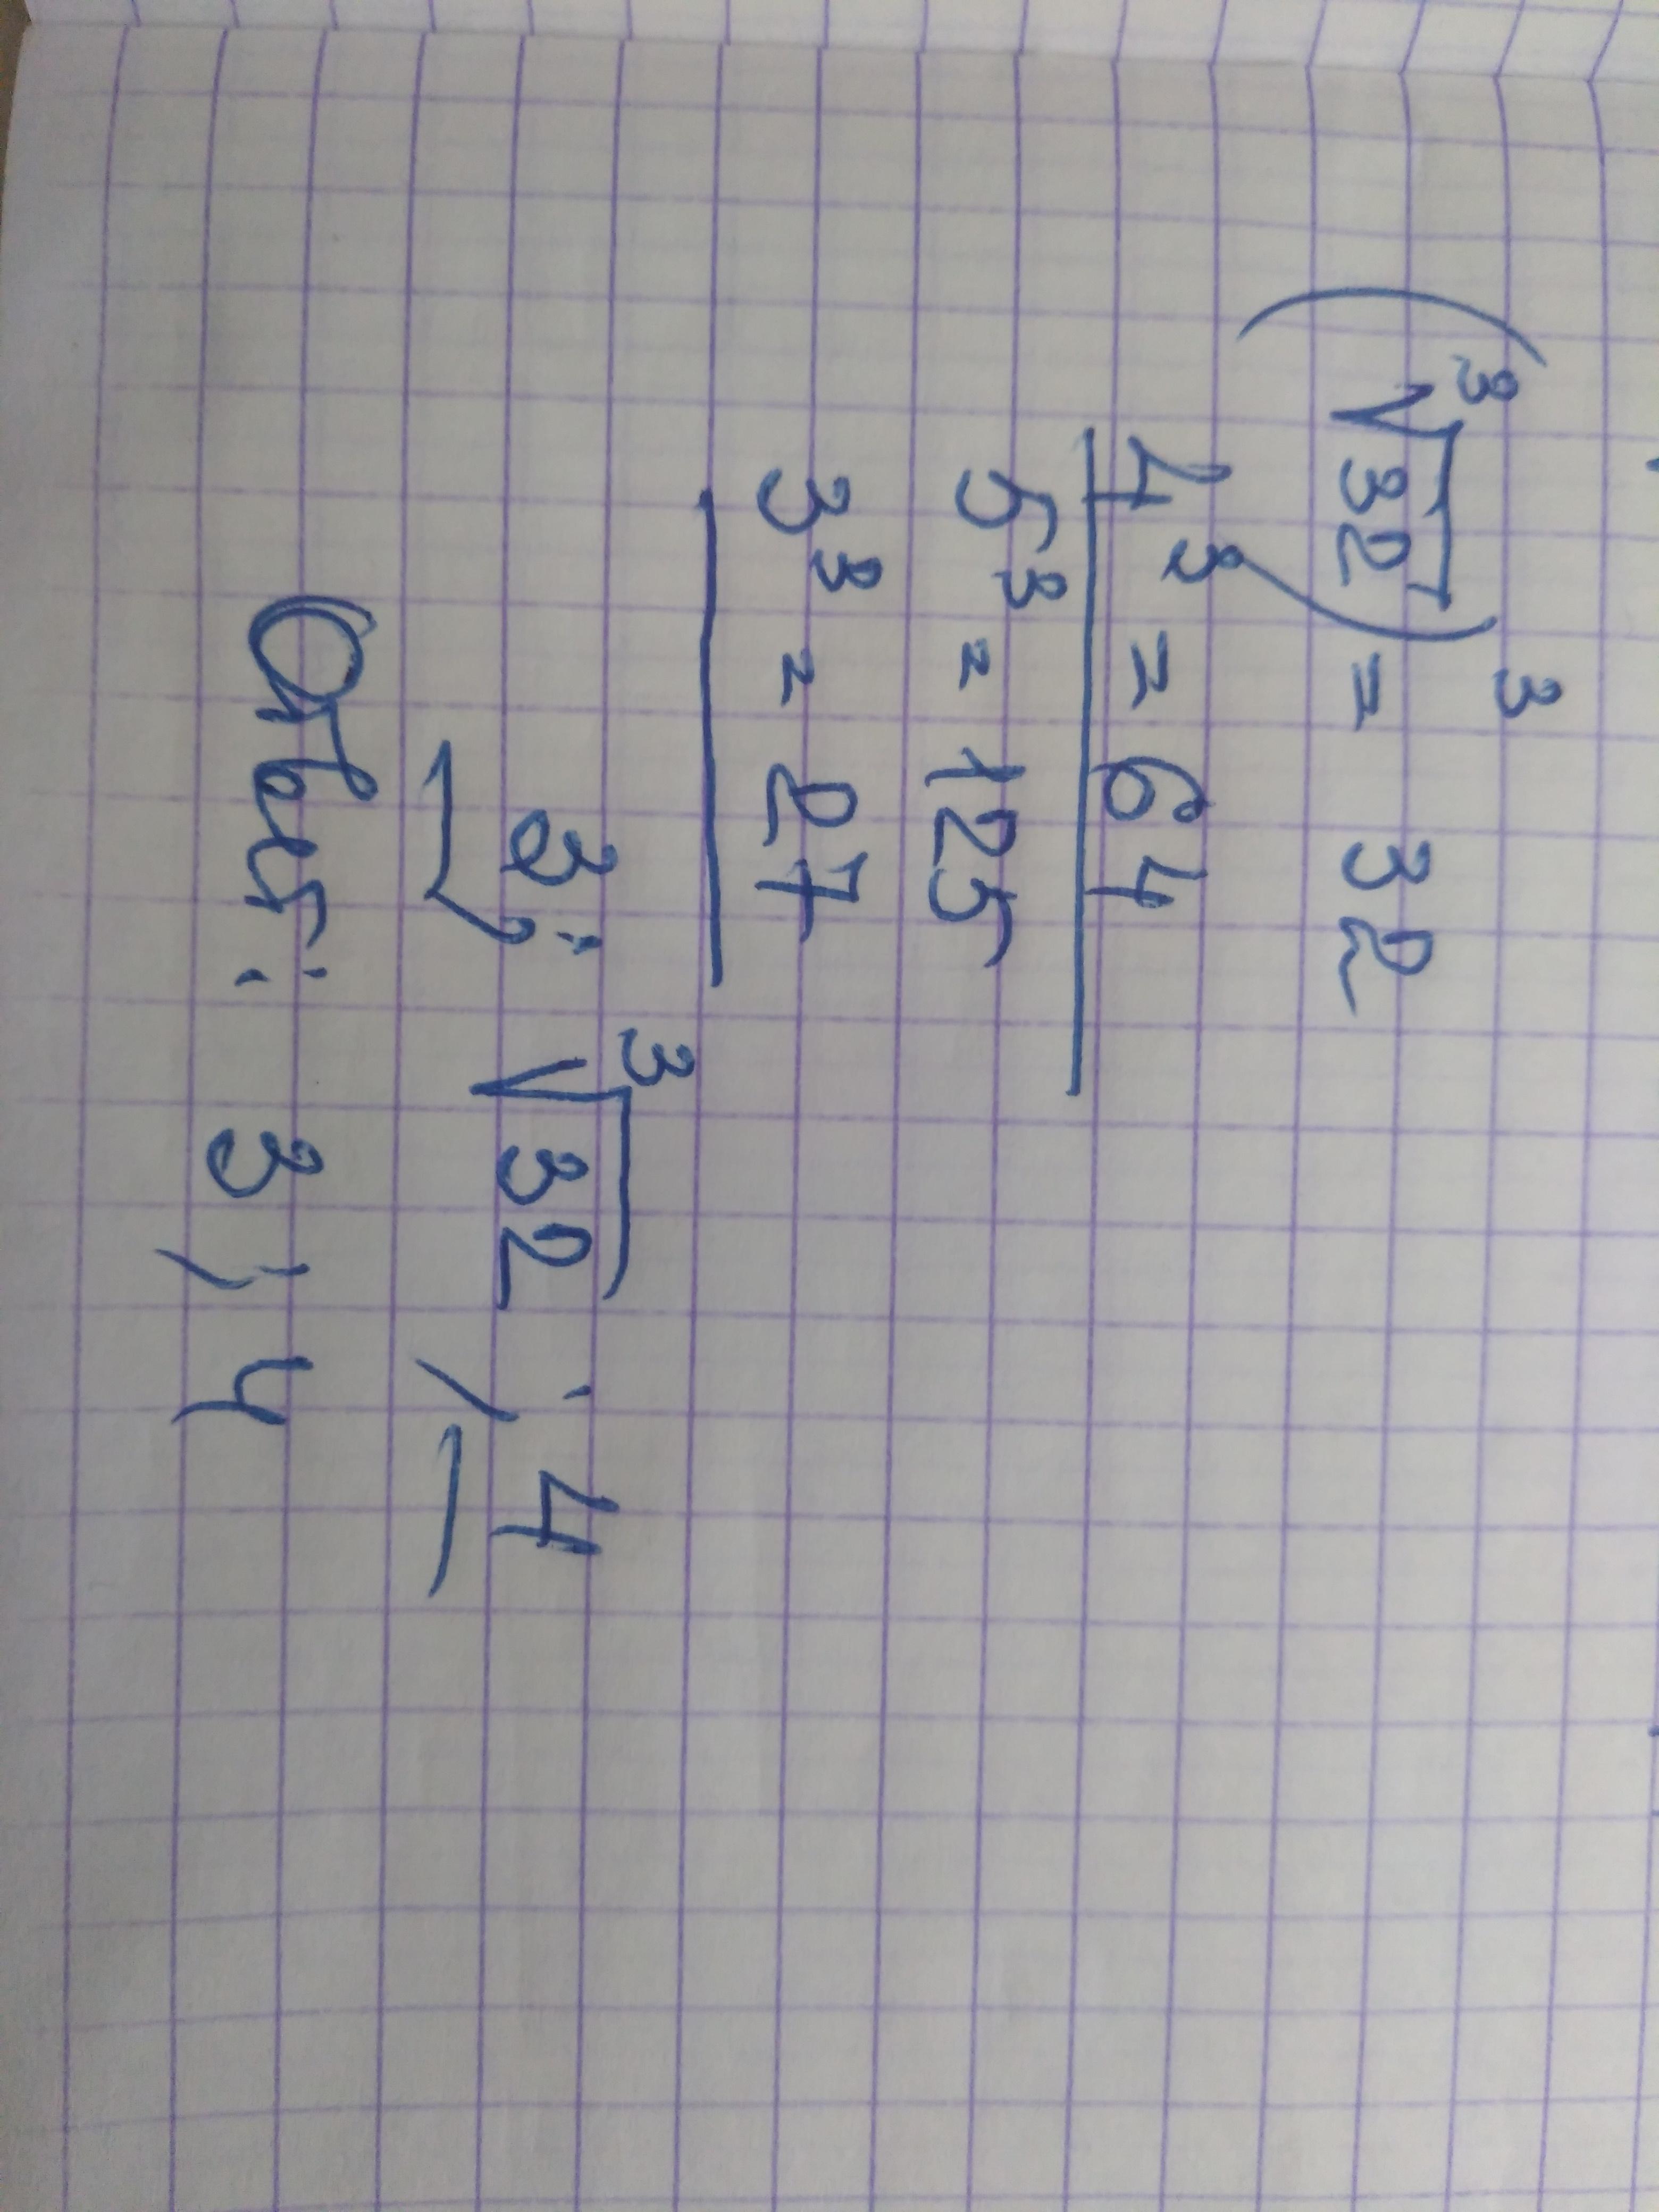 (∛32)³ = 32
4³ = 64
5³ = 125
3³ = 27
3; ∛32; 4
Ответ: 3; 4